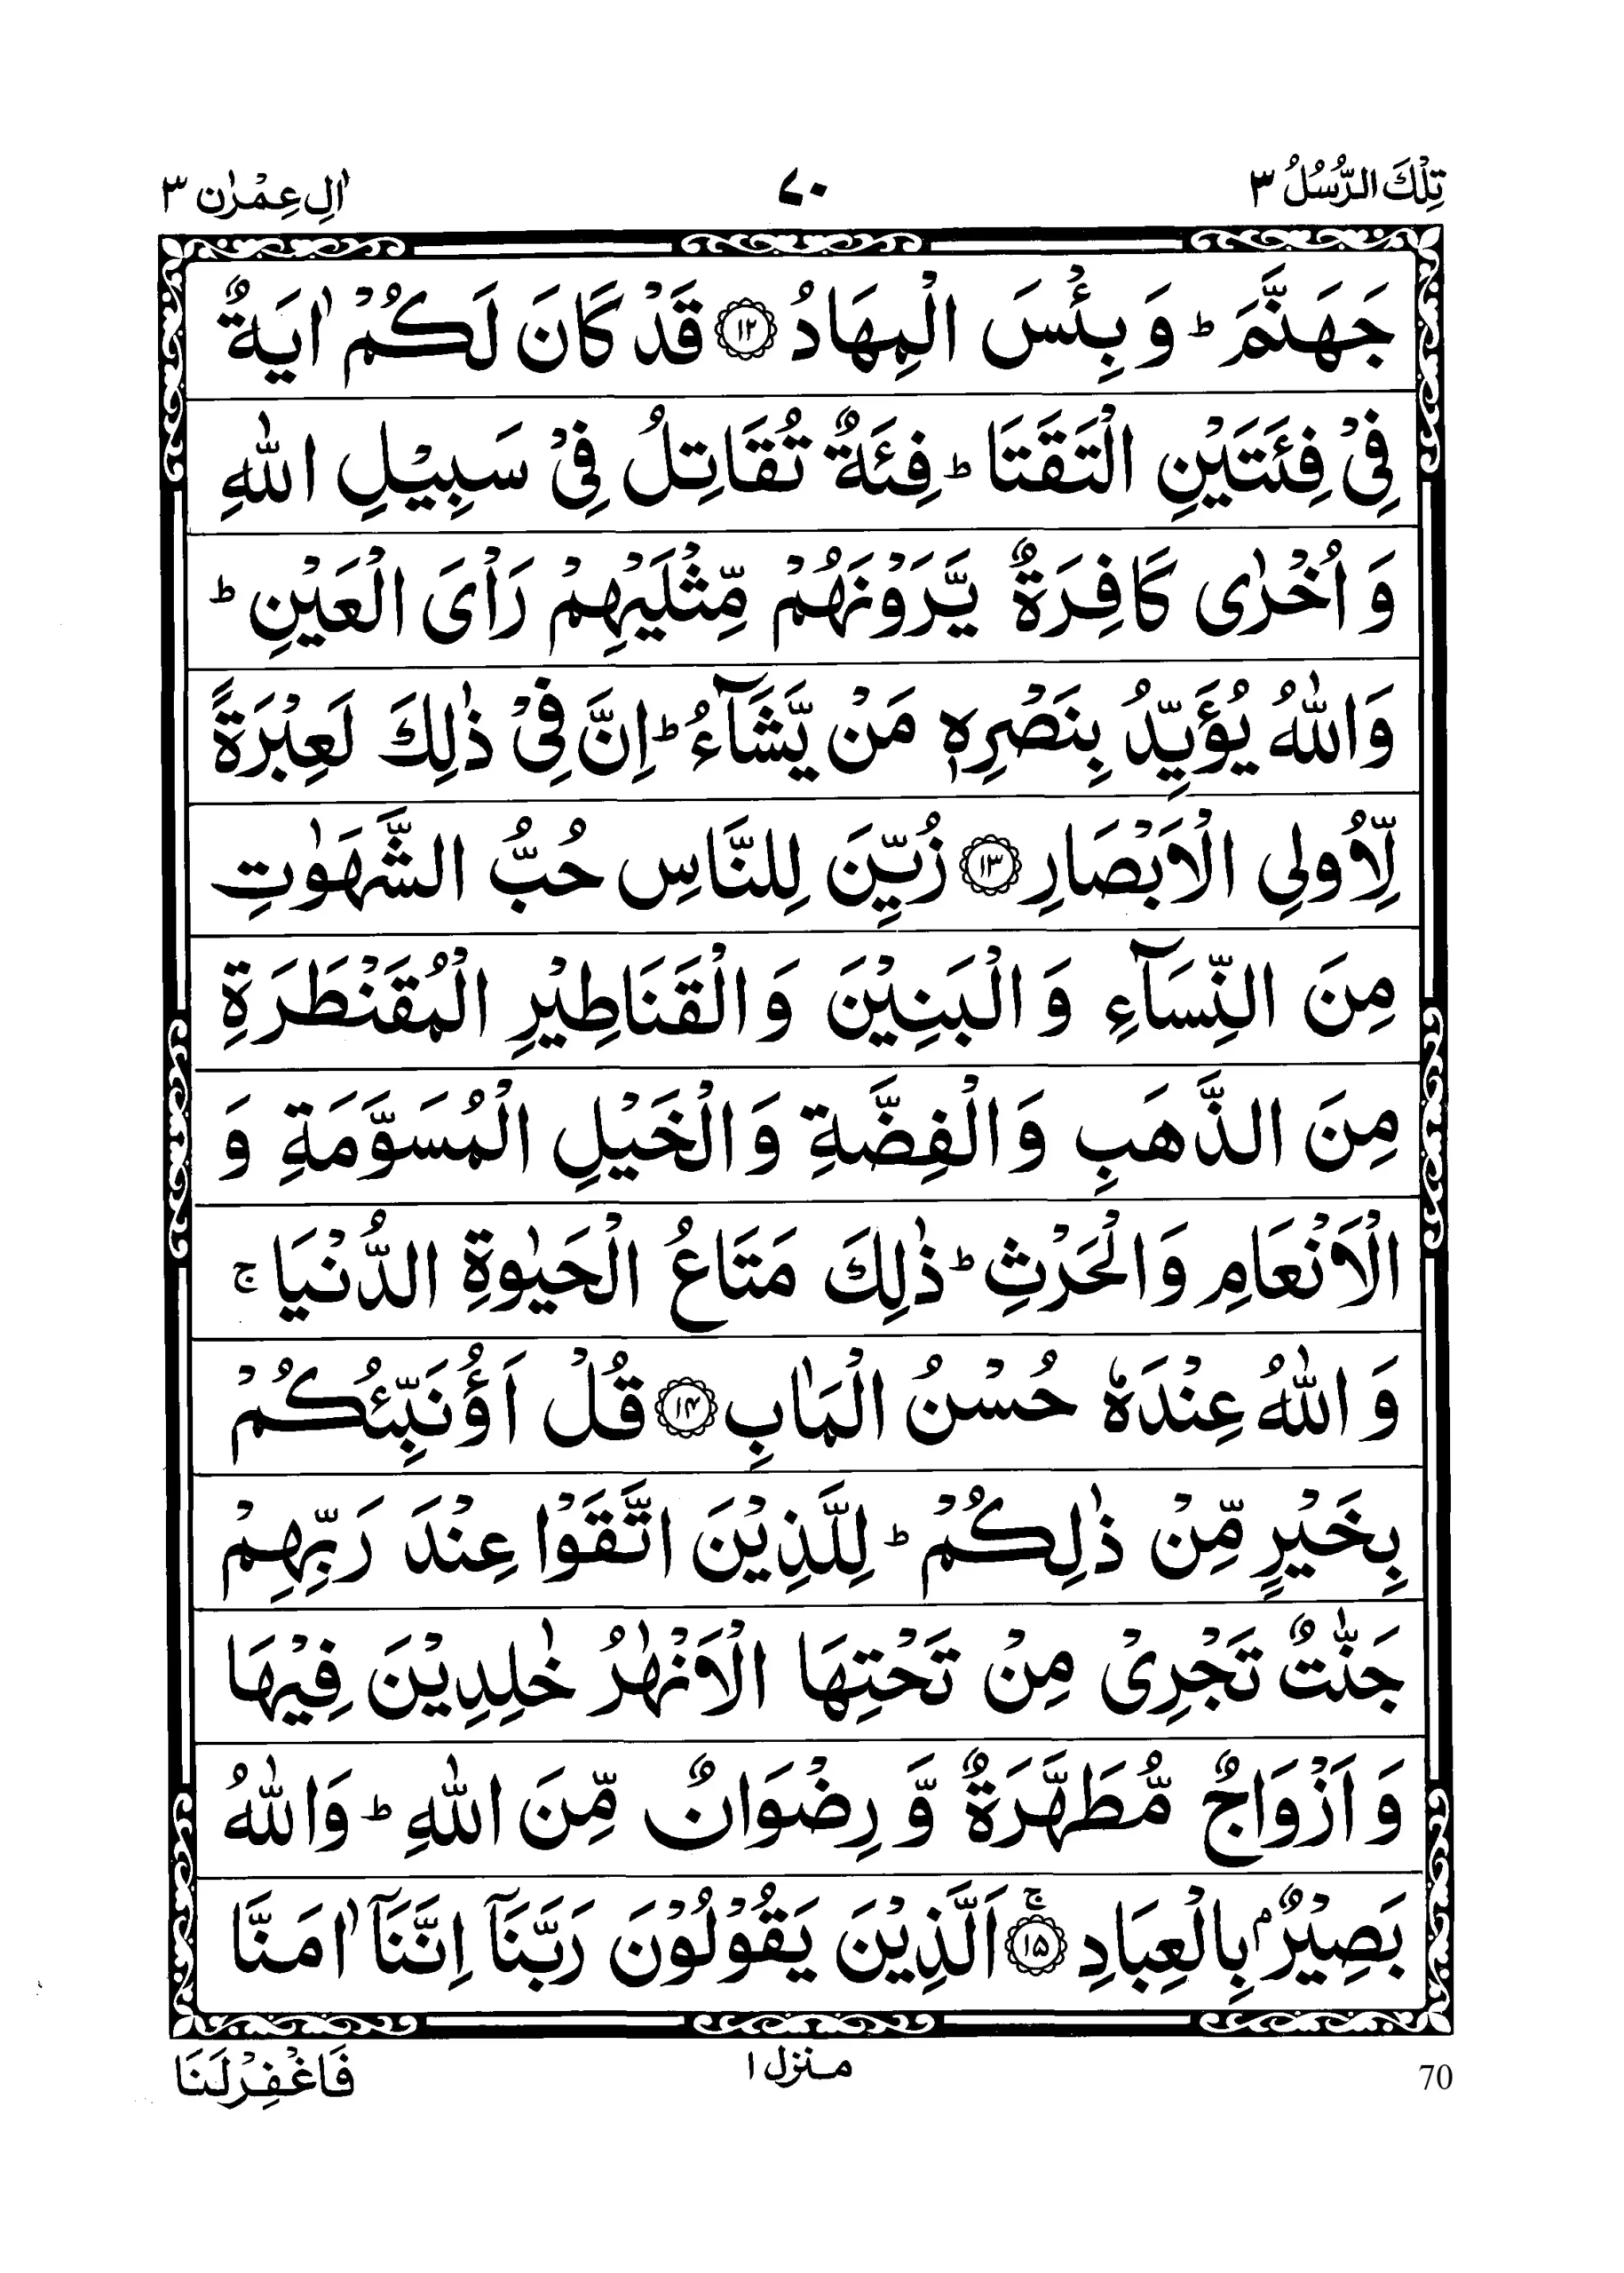 تِلْكَ الرُّسُلُ ٣
٧٠
اٰلِ عِمْرٰن ٣
جَهَنَّمَ ؕ وَ بِئْسَ الْمِهَادُ ۝۱۲ قَدْ كَانَ لَكُمْ اٰيَةٌ
فِيْ فِئَتَيْنِ الْتَقَتَا ؕ فِئَةٌ تُقَاتِلُ فِيْ سَبِيْلِ اللّٰهِ
وَ اُخْرٰى كَافِرَةٌ يَّرَوْنَهُمْ مِّثْلَيْهِمْ رَاْىَ الْعَيْنِ ؕ
وَ اللّٰهُ يُؤَيِّدُ بِنَصْرِهٖ مَنْ يَّشَآءُ ؕ اِنَّ فِيْ ذٰلِكَ لَعِبْرَةً
لِّاُولِي الْاَبْصَارِ ۝۱۳ زُيِّنَ لِلنَّاسِ حُبُّ الشَّهَوٰتِ
مِنَ النِّسَآءِ وَ الْبَنِيْنَ وَ الْقَنَاطِيْرِ الْمُقَنْطَرَةِ
مِنَ الذَّهَبِ وَ الْفِضَّةِ وَ الْخَيْلِ الْمُسَوَّمَةِ وَ
الْاَنْعَامِ وَ الْحَرْثِ ؕ ذٰلِكَ مَتَاعُ الْحَيٰوةِ الدُّنْيَا ۚ
وَ اللّٰهُ عِنْدَهٗ حُسْنُ الْمَاٰبِ ۝۱۴ قُلْ اَؤُنَبِّئُكُمْ
بِخَيْرٍ مِّنْ ذٰلِكُمْ ؕ لِلَّذِيْنَ اتَّقَوْا عِنْدَ رَبِّهِمْ
جَنّٰتٌ تَجْرِيْ مِنْ تَحْتِهَا الْاَنْهٰرُ خٰلِدِيْنَ فِيْهَا
وَ اَزْوَاجٌ مُّطَهَّرَةٌ وَّ رِضْوَانٌ مِّنَ اللّٰهِ ؕ وَ اللّٰهُ
بَصِيْرٌۢ بِالْعِبَادِ ۝۱۵ۚ اَلَّذِيْنَ يَقُوْلُوْنَ رَبَّنَآ اِنَّنَآ اٰمَنَّا
فَاغْفِرْلَنَا
منزل ١
70